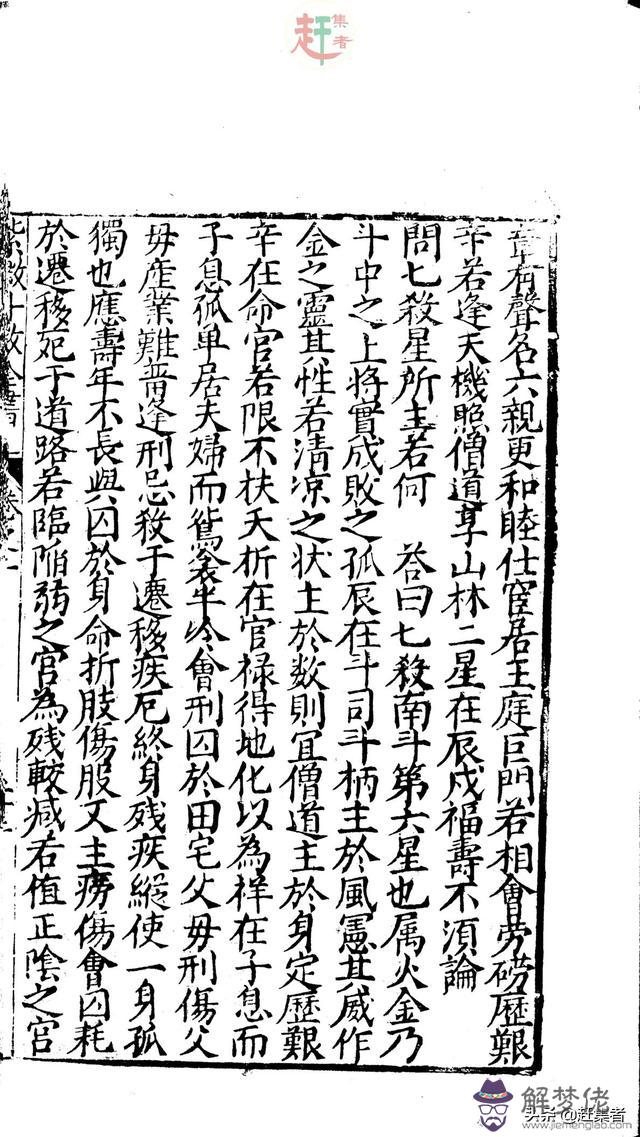 赶集者
章有聲名六親更和睦仕宦居王庭巨門若相會劳磅歷艱
辛若逢天機照僧道享山林二星在辰戌福壽不湏論
問七殺星所主若何　荅曰七殺南斗第六星也属火金乃
斗中之上将實成敗之孤辰在斗司斗柄主於風憲其威作
金之靈其性若清凉之状主於数則宜僧道主於身定歷艱
辛在命宫若限不扶夭折在官禄得地化以為祥在子息而
子息孤单居夫婦而鴛衾半冷會刑囚於田宅父母刑傷父
母産業難畱逢刑忌殺于遷移疾厄終身残疾縦使一身孤
獨也應壽年不長與囚於身命折肢傷股又主癆傷會囚耗
於遷移死于道路若臨陥弱之宫為残較减若值正陰之宫
紫微斗数全書 卷之一
解梦佬
头条 @赶集者
www.jiemenglao.com